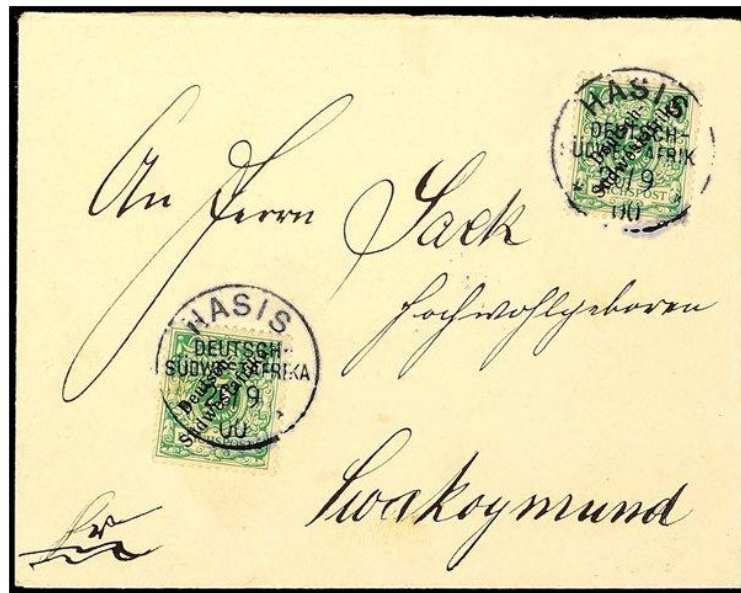 HASIS
DEUTSCH-
SÜDWESTAFRIK
/9
00
Deutsch-
Südwestafrika
REICHSPOST
An Herrn Sack
Hochwohlgeboren
HASIS
DEUTSCH-
SÜDWESTAFRIKA
9
00
Deutsch-
Südwestafrika
REICHSPOST
Swakopmund